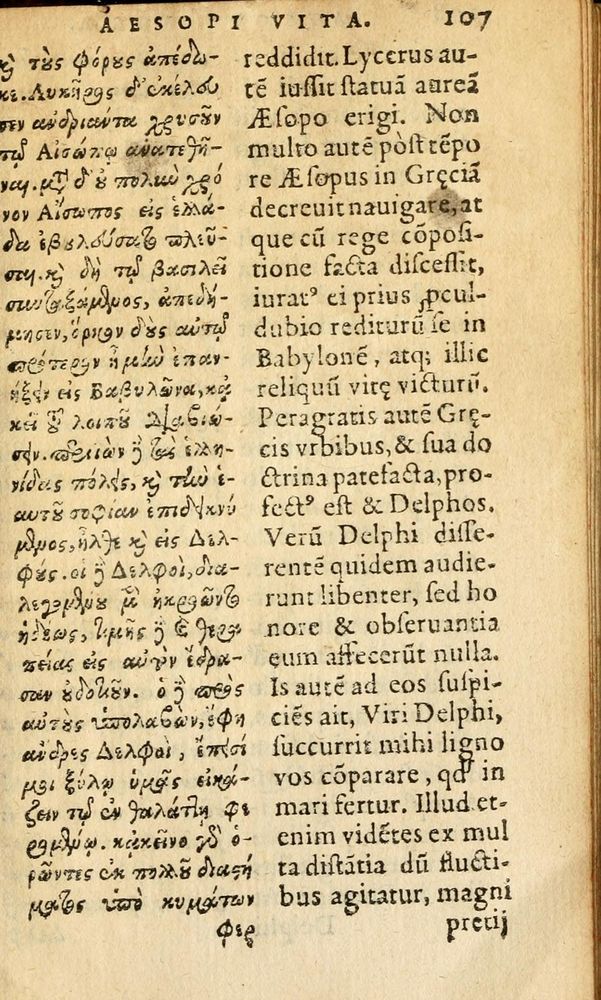 AESOPI VITA. 107
ϗ τοὺς φόρους ἀπέδω-
κε. Λυκῆρος δ' ἐκέλευ
σεν ανδριάντα χρυσοῦν
τῷ Αἰσώπῳ ἀνατεθῆ-
ναι. μετ' οὐ πολιὼ χρό
νον Αἴσωπος εἰς ἑλλά-
δα ἐβουλεύσατο πλεῦ-
σαι. ϗ δὴ τῷ βασιλεῖ
συνταξάμενος, ἀπεδή-
μησεν, ὅρκον δοὺς αὐτῷ
πρότερον ἦ μὴν ἐπαν-
ήξειν εἰς Βαβυλῶνα, κἀ
κεῖ τοῦ λοιποῦ διαβιώ-
σειν. περιϊὼν δὲ τὰς ἑλλη-
νίδας πόλεις, ϗ τὴν ἑ-
αυτοῦ σοφίαν ἐπιδεικνύ
μενος, ἦλθε ϗ εἰς Δελ-
φούς. οἱ δὲ Δελφοὶ, δια-
λεγομένου μὲν ἠκροῶντο
ἡδέως, τιμῆς δὲ ϗ θερα
πείας εἰς αὐτὸν ἔδρα-
σαν οὐδοτιοῦν. ὁ δὲ πρὸς
αὐτοὺς ὑπολαβὼν, ἔφη
ἄνδρες Δελφοὶ, ἔπεισί
μοι ξύλῳ ὑμᾶς εἰκά-
ζειν τῷ ἐν θαλάττῃ φε
ρομένῳ. κἀκεῖνο γὸ ὁ-
ρῶντες ἐκ πολλοῦ διαστή
ματος ὑπὸ κυμάτων
φερ
reddidit. Lycerus au-
tē iussit statuā aureā
Æsopo erigi. Non
multo autē pòst tēpo
re Æsopus in Gręciā
decreuit nauigare, at
que cū rege cōposi-
tione facta discessit,
iurat⁹ ei prius ꝓcul-
dubio rediturū se in
Babylonē, atq; illic
reliquū vitę victurū.
Peragratis autē Grę-
cis vrbibus, & sua do
ctrina patefacta, pro-
fect⁹ est & Delphos.
Verū Delphi disse-
rentē quidem audie-
runt libenter, sed ho
nore & obseruantia
eum affecerūt nulla.
Is autē ad eos suspi-
ciēs ait, Viri Delphi,
succurrit mihi ligno
vos cōparare, qd' in
mari fertur. Illud et-
enim vidētes ex mul
ta distātia dū flucti-
bus agitatur, magni
pretij